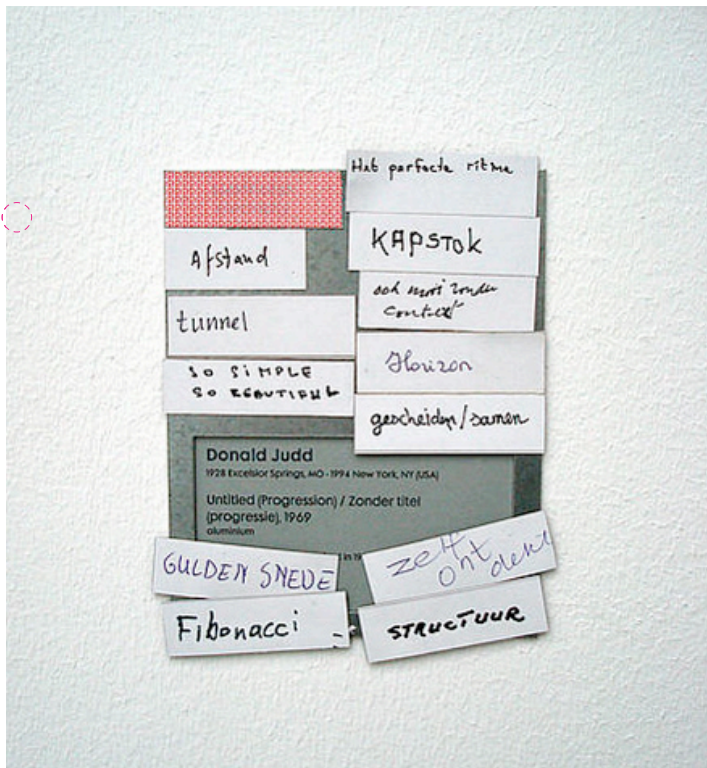 Het perfecte ritme
Afstand
KAPSTOK
tunnel
ook mooi zonder
context
SO SIMPLE
SO BEAUTIFUL
Horizon
gescheiden/samen
Donald Judd
1928 Excelsior Springs, MO - 1994 New York, NY (USA)
Untitled (Progression) / Zonder titel
(progressie), 1969
aluminium
in 19
GULDEN SNEDE
zelf
ont
Fibonacci
STRUCTUUR